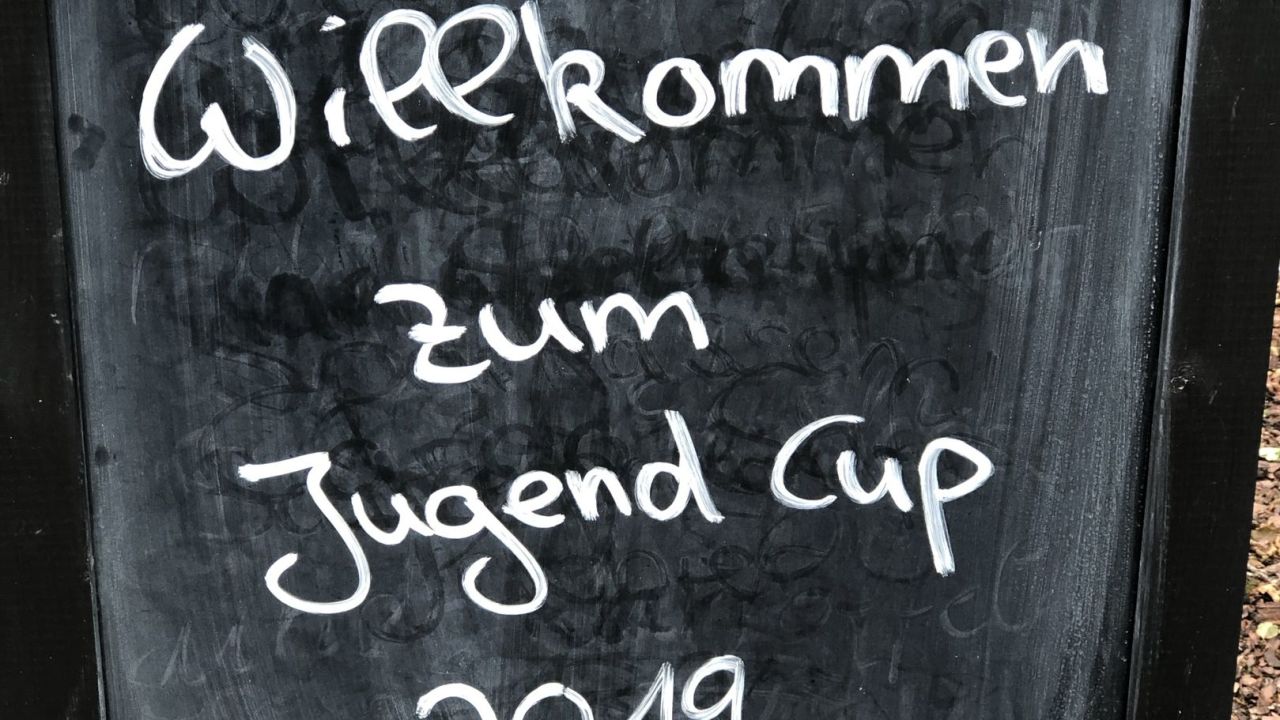 Willkommen
zum
Jugend Cup
2019